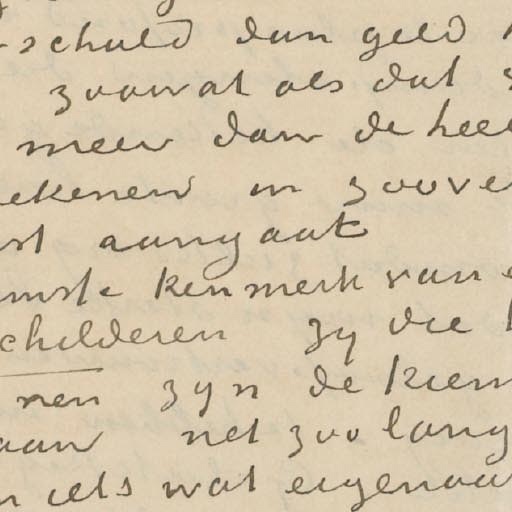 schuld dan geld
zoowat als dat
meer dan de heel
ekenend en zoove
st aangaat
mste kenmerk van
childeren zy die
nen zyn de kiem
aan net zoo lang
n iets wat eigenaa